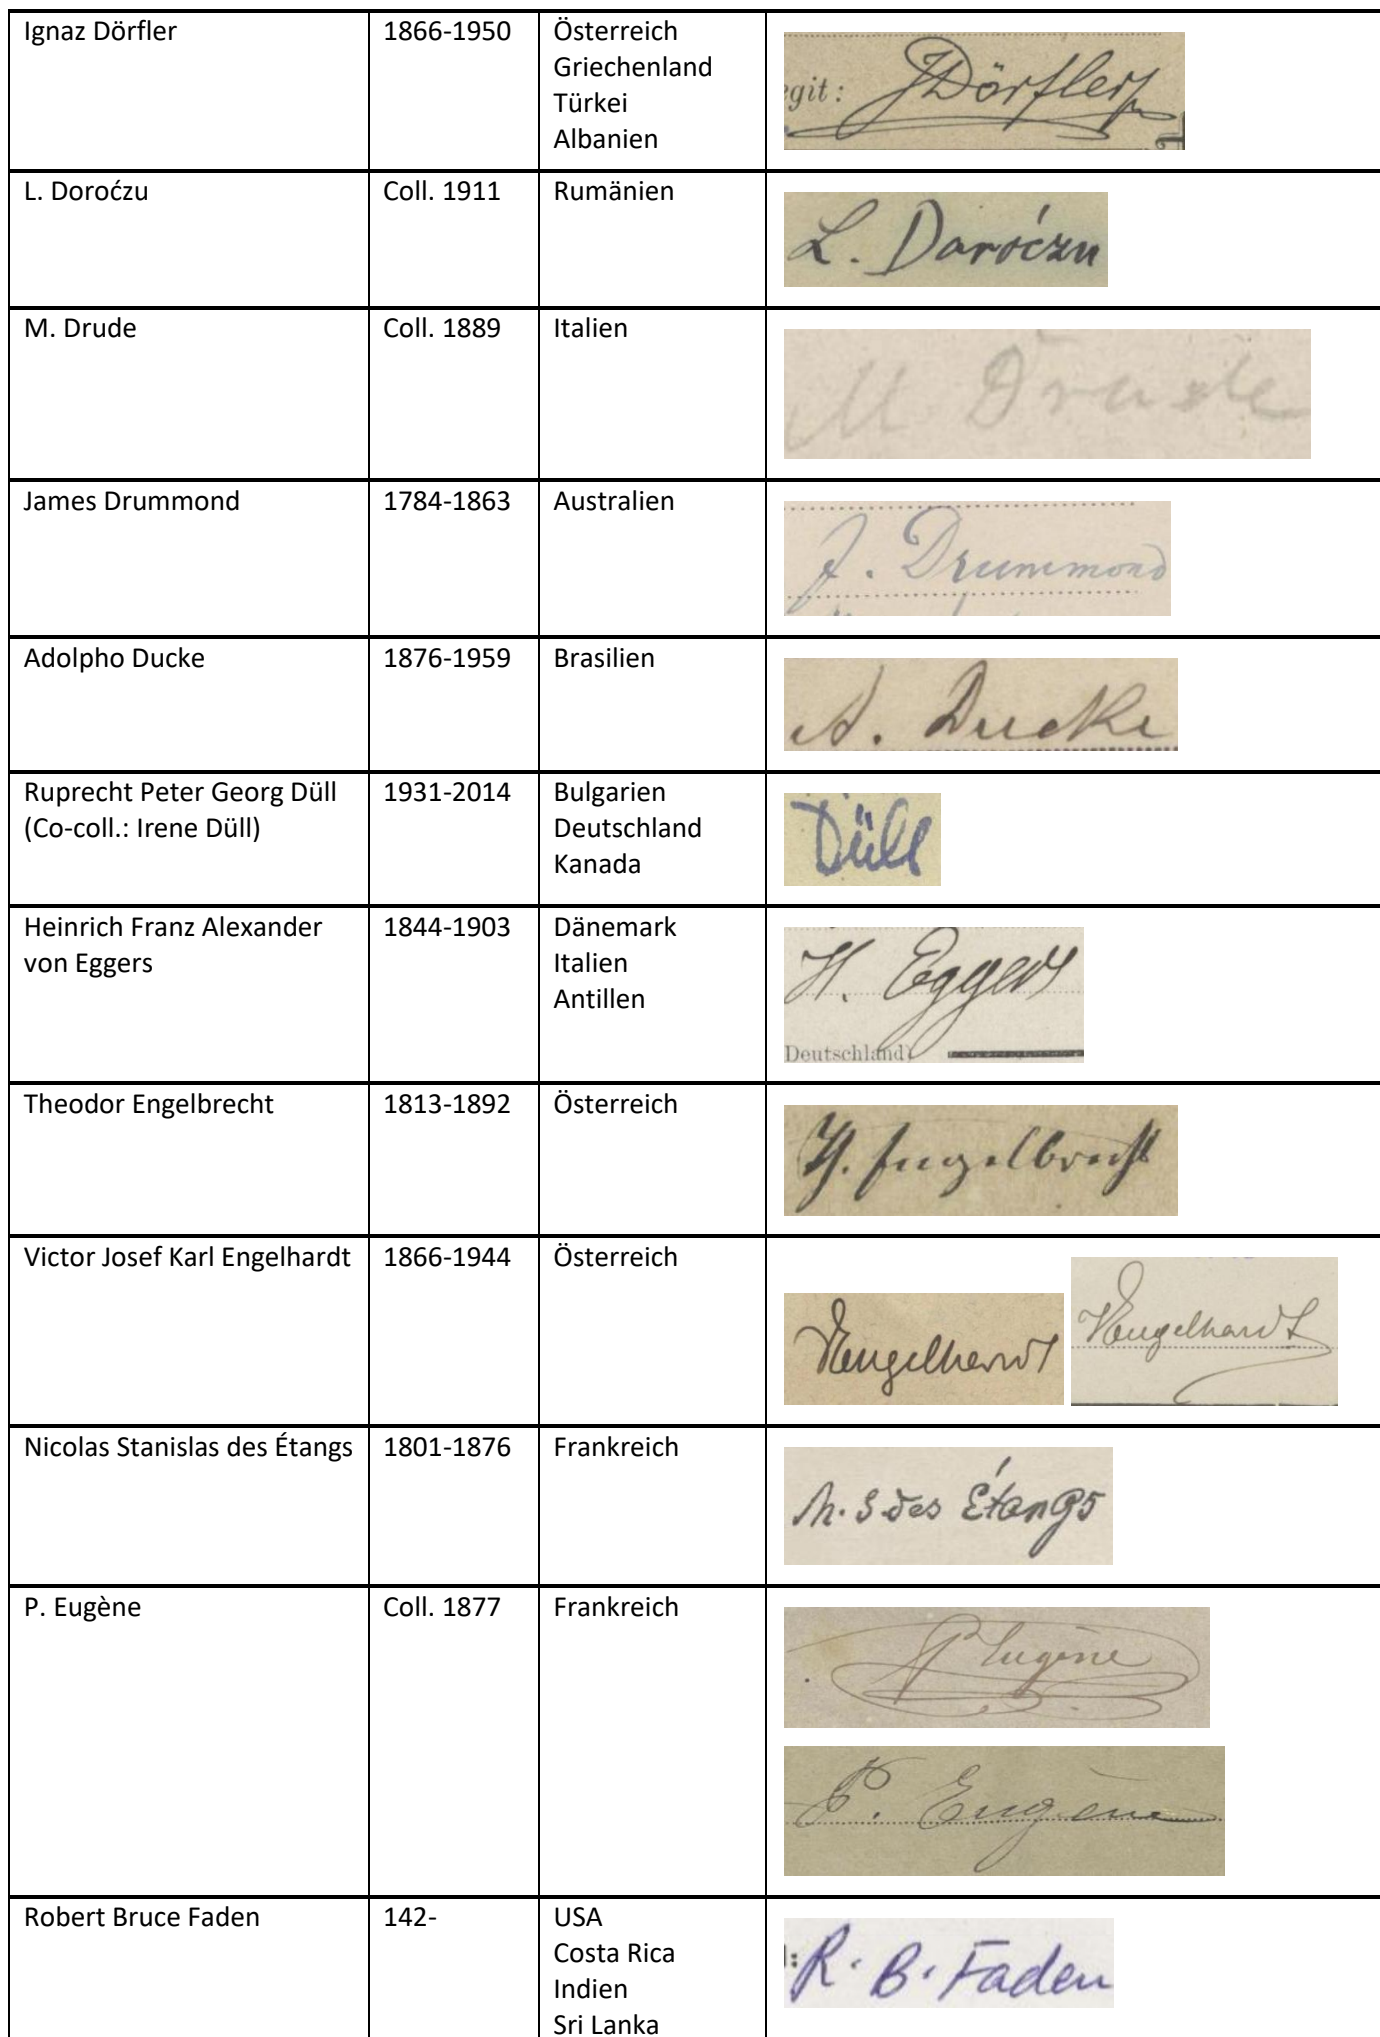 Ignaz Dörfler
1866-1950
Österreich
Griechenland
Türkei
Albanien
egit: JDörfler
L. Doroćzu
Coll. 1911
Rumänien
L. Daróczu
M. Drude
Coll. 1889
Italien
M. Drude
James Drummond
1784-1863
Australien
J. Drummond
Adolpho Ducke
1876-1959
Brasilien
A. Ducke
Ruprecht Peter Georg Düll
(Co-coll.: Irene Düll)
1931-2014
Bulgarien
Deutschland
Kanada
Düll
Heinrich Franz Alexander
von Eggers
1844-1903
Dänemark
Italien
Antillen
H. Eggers
Deutschland)
Theodor Engelbrecht
1813-1892
Österreich
Th. Engelbrecht
Victor Josef Karl Engelhardt
1866-1944
Österreich
VEngelhardt
VEngelhardt
Nicolas Stanislas des Étangs
1801-1876
Frankreich
N. S des Étangs
P. Eugène
Coll. 1877
Frankreich
P Eugène
P. Eugène
Robert Bruce Faden
142-
USA
Costa Rica
Indien
Sri Lanka
R. B. Faden